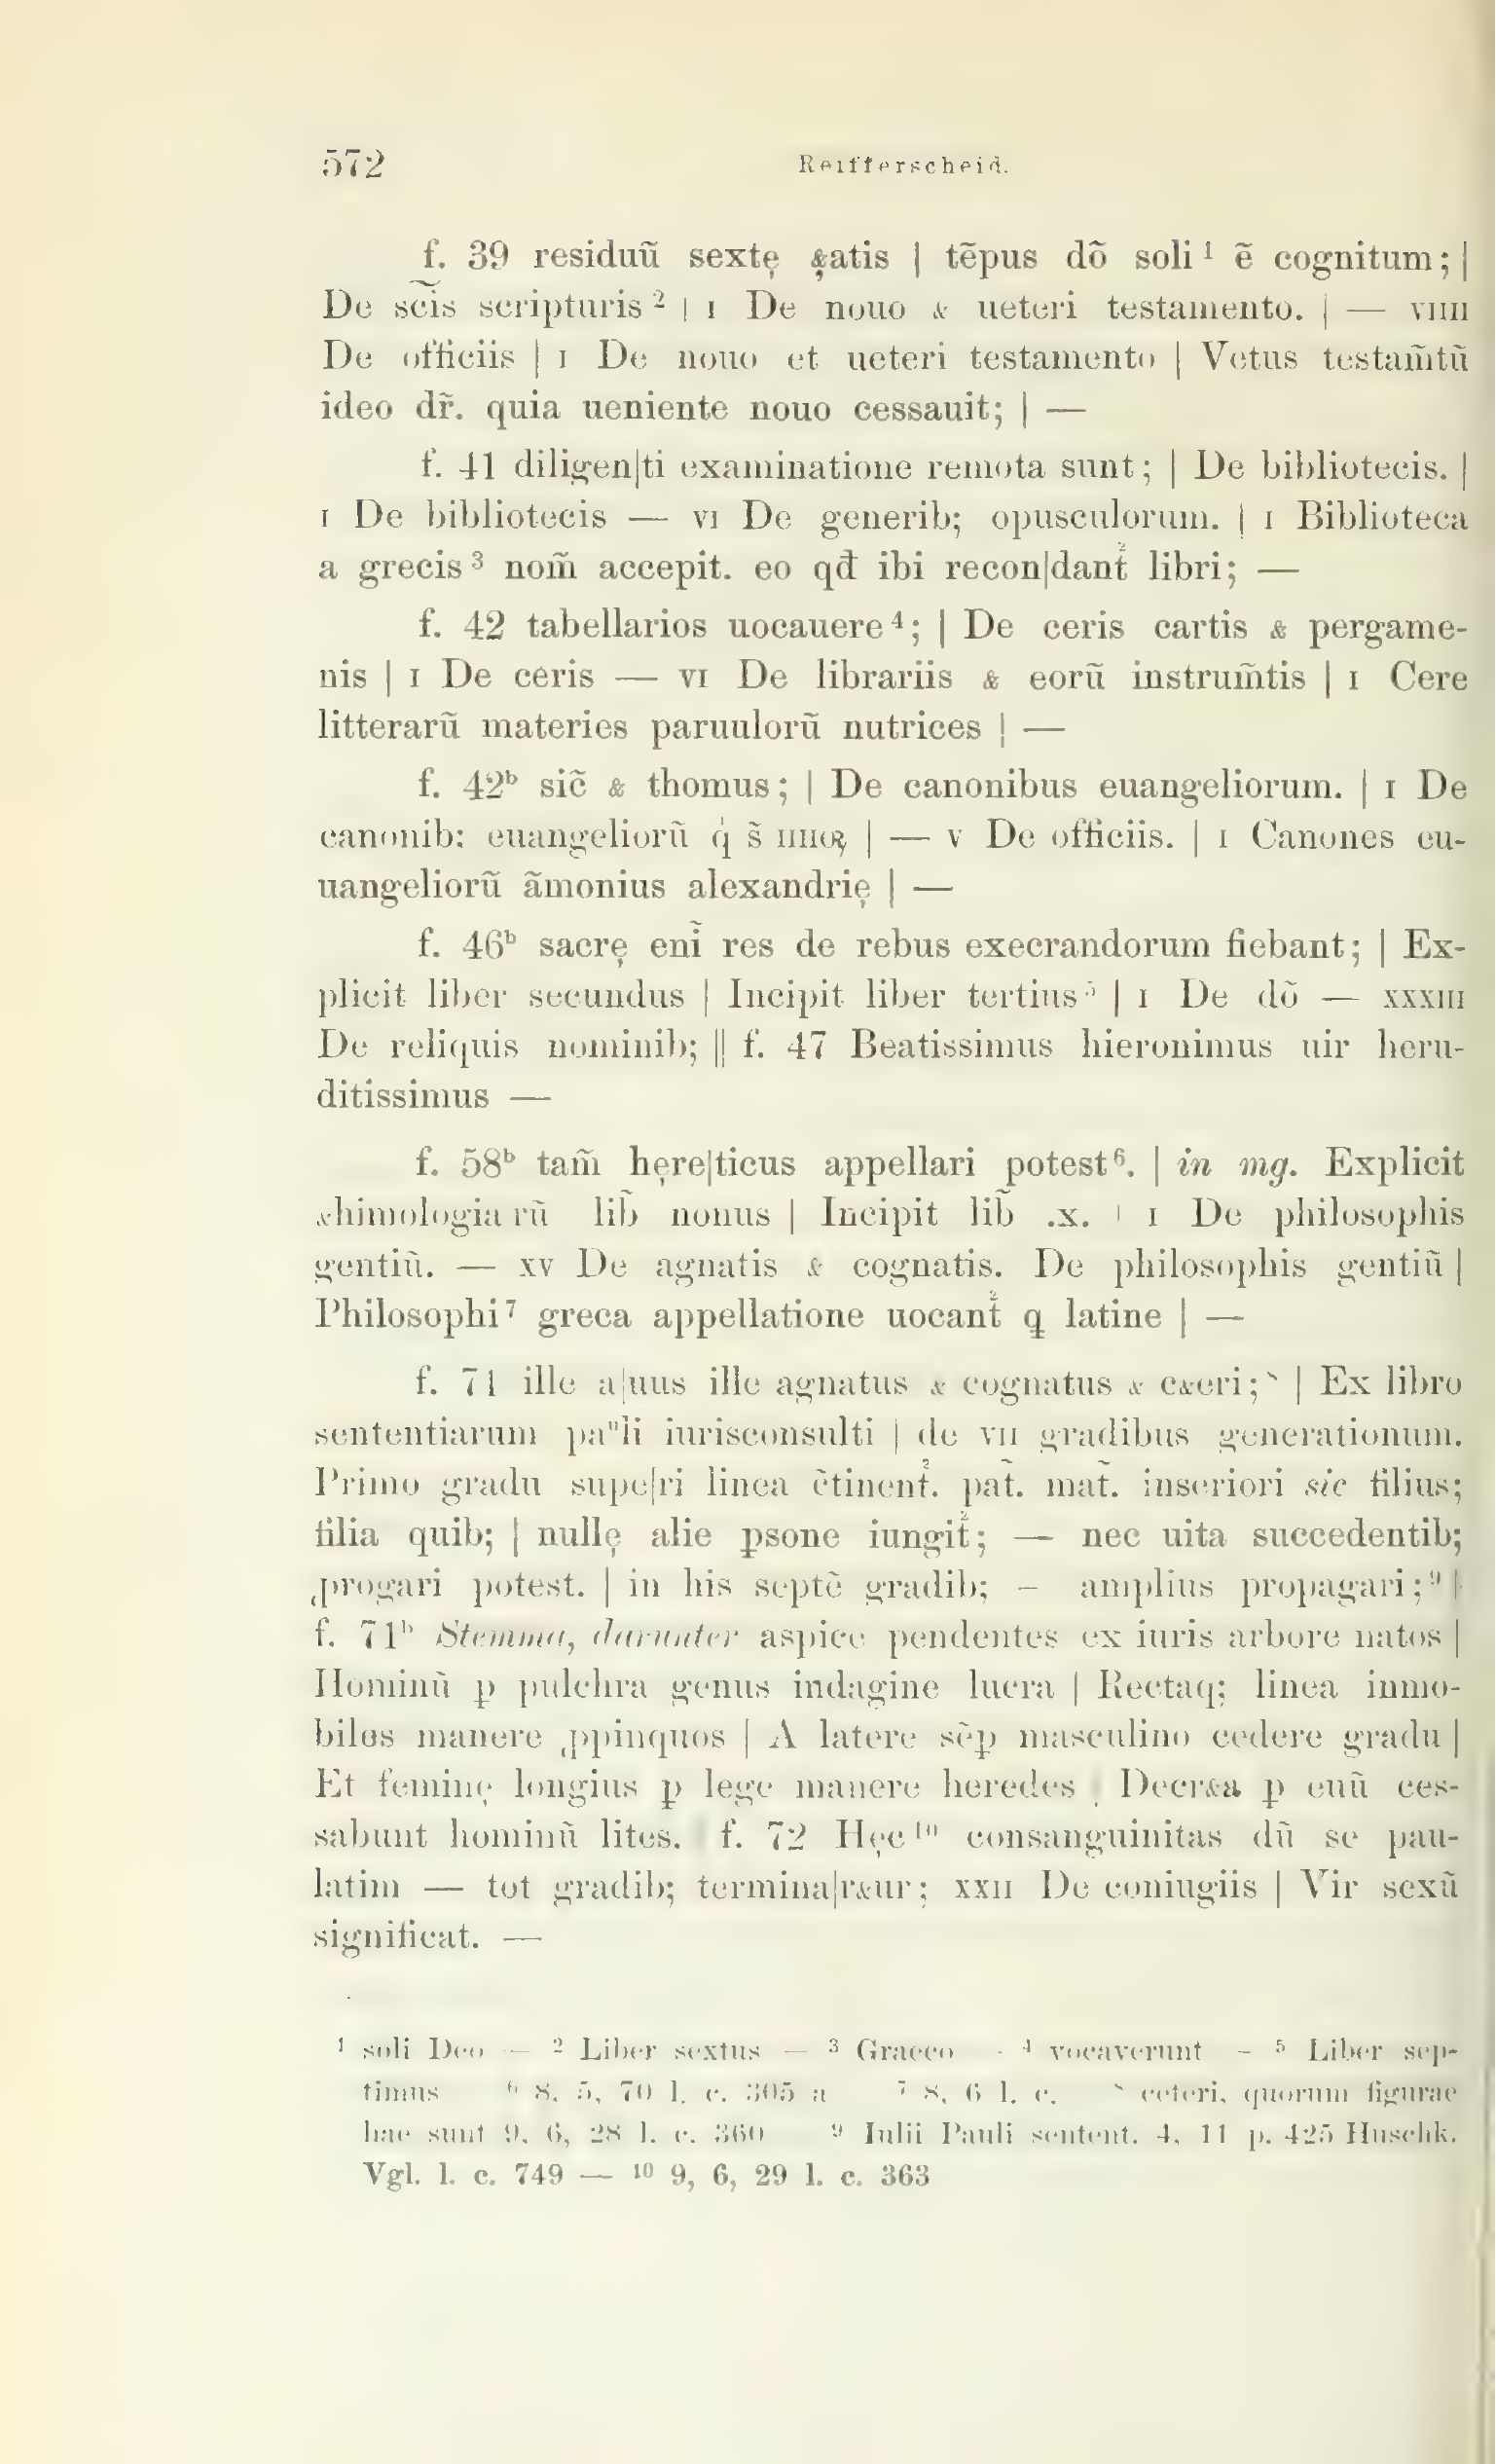 572 Reifferscheid.
f. 39 residuũ sextę &̨atis | tẽpus dõ soli ¹ ẽ cognitum; |
De sc͠is scripturis ² | I De nouo & ueteri testamento. | — VIIII
De officiis | I De nouo et ueteri testamento | Vetus testam̃tũ
ideo dr̃. quia ueniente nouo cessauit; | —
f. 41 diligen|ti examinatione remota sunt; | De bibliotecis. |
I De bibliotecis — VI De generib; opusculorum. | I Biblioteca
a grecis ³ nom̃ accepit. eo qđ ibi recon|dant᷒ libri; —
f. 42 tabellarios uocauere ⁴; | De ceris cartis & pergame-
nis | I De ceris — VI De librariis & eorũ instrum̃tis | I Cere
litterarũ materies paruulorũ nutrices | —
f. 42ᵇ sic̃ & thomus; | De canonibus euangeliorum. | I De
canonib: euangeliorũ q̇ s̃ IIIIoꝝ | — V De officiis. | I Canones eu-
uangeliorũ ãmonius alexandrię | —
f. 46ᵇ sacrę enĩ res de rebus execrandorum fiebant; | Ex-
plicit liber secundus | Incipit liber tertius ⁵ | I De dõ — XXXIII
De reliquis nominib; || f. 47 Beatissimus hieronimus uir heru-
ditissimus —
f. 58ᵇ tam̃ hęre|ticus appellari potest ⁶. | in mg. Explicit
&himologiarũ lib̃ nonus | Incipit lib̃ .x. | I De philosophis
gentiũ. — XV De agnatis & cognatis. De philosophis gentiũ |
Philosophi ⁷ greca appellatione uocant᷒ q latine | —
f. 71 ille a|uus ille agnatus & cognatus & c&eri; ⁸ | Ex libro
sententiarum paᵘli iurisconsulti | de VII gradibus generationum.
Primo gradu supe|ri linea c̃tinent᷒. pat̃. mat̃. inseriori sic filius;
filia quib; | nullę alie ꝑsone iungit᷒; — nec uita succedentib;
ꝓrogari potest. | in his septẽ gradib; — amplius propagari; ⁹ |
f. 71ᵇ Stemma, darunter aspice pendentes ex iuris arbore natos |
Hominũ ꝑ pulchra genus indagine lucra | Rectaq; linea inmo-
biles manere ꝓpinquos | A latere sẽꝑ masculino cedere gradu |
Et feminę longius ꝑ lege manere heredes | Decr&a ꝑ euũ ces-
sabunt hominũ lites. f. 72 Hęc ¹⁰ consanguinitas dũ se pau-
latim — tot gradib; termina|r&ur; XXII De coniugiis | Vir sexũ
significat. —
¹ soli Deo — ² Liber sextus — ³ Graeco - ⁴ vocaverunt - ⁵ Liber sep-
timus ⁶ 8, 5, 70 l. c. 305 a ⁷ 8, 6 l. c. ⁸ ceteri, quorum figurae
hae sunt 9, 6, 28 l. c. 360 ⁹ Iulii Pauli sentent. 4, 11 p. 425 Huschk.
Vgl. l. c. 749 — ¹⁰ 9, 6, 29 l. c. 363